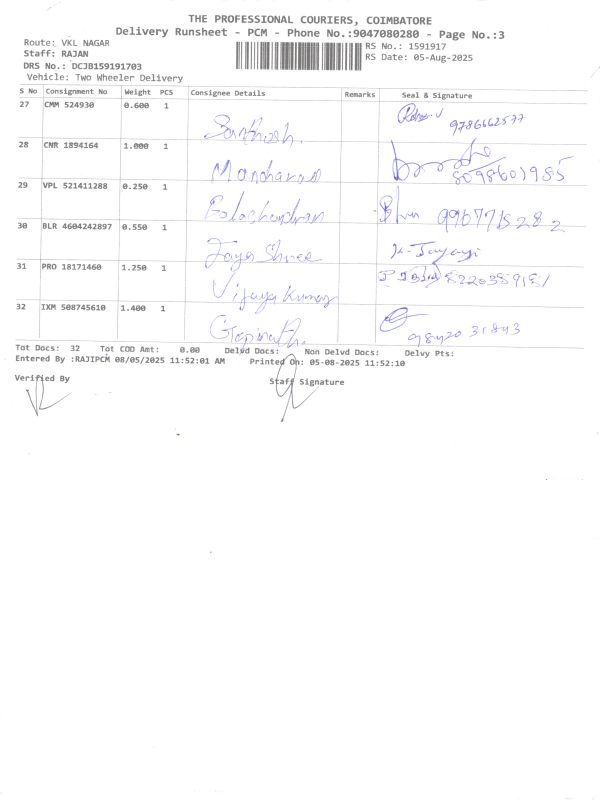 THE PROFESSIONAL COURIERS, COIMBATORE
Delivery Runsheet - PCM - Phone No.:9047080280 - Page No.:3
Route: VKL NAGAR
RS No.: 1591917
Staff: RAJAN
RS Date: 05-Aug-2025
DRS No.: DCJB159191703
Vehicle: Two Wheeler Delivery
S No Consignment No Weight PCS Consignee Details Remarks Seal & Signature
27 CMM 524930 0.600 1 Santhosh. 9786662577
28 CNR 1894164 1.000 1 Manoharan 8098601985
29 VPL 521411288 0.250 1 Balachandran
30 BLR 4604242897 0.550 1 Jaya Shree
31 PRO 18171460 1.250 1 Vijaya Kumar
32 IXM 508745610 1.400 1 Gopinath. 98420 31843
Tot Docs: 32 Tot COD Amt: 0.00 Delvd Docs: Non Delvd Docs: Delvy Pts:
Entered By :RAJIPCM 08/05/2025 11:52:01 AM Printed On: 05-08-2025 11:52:10
Verified By Staff Signature